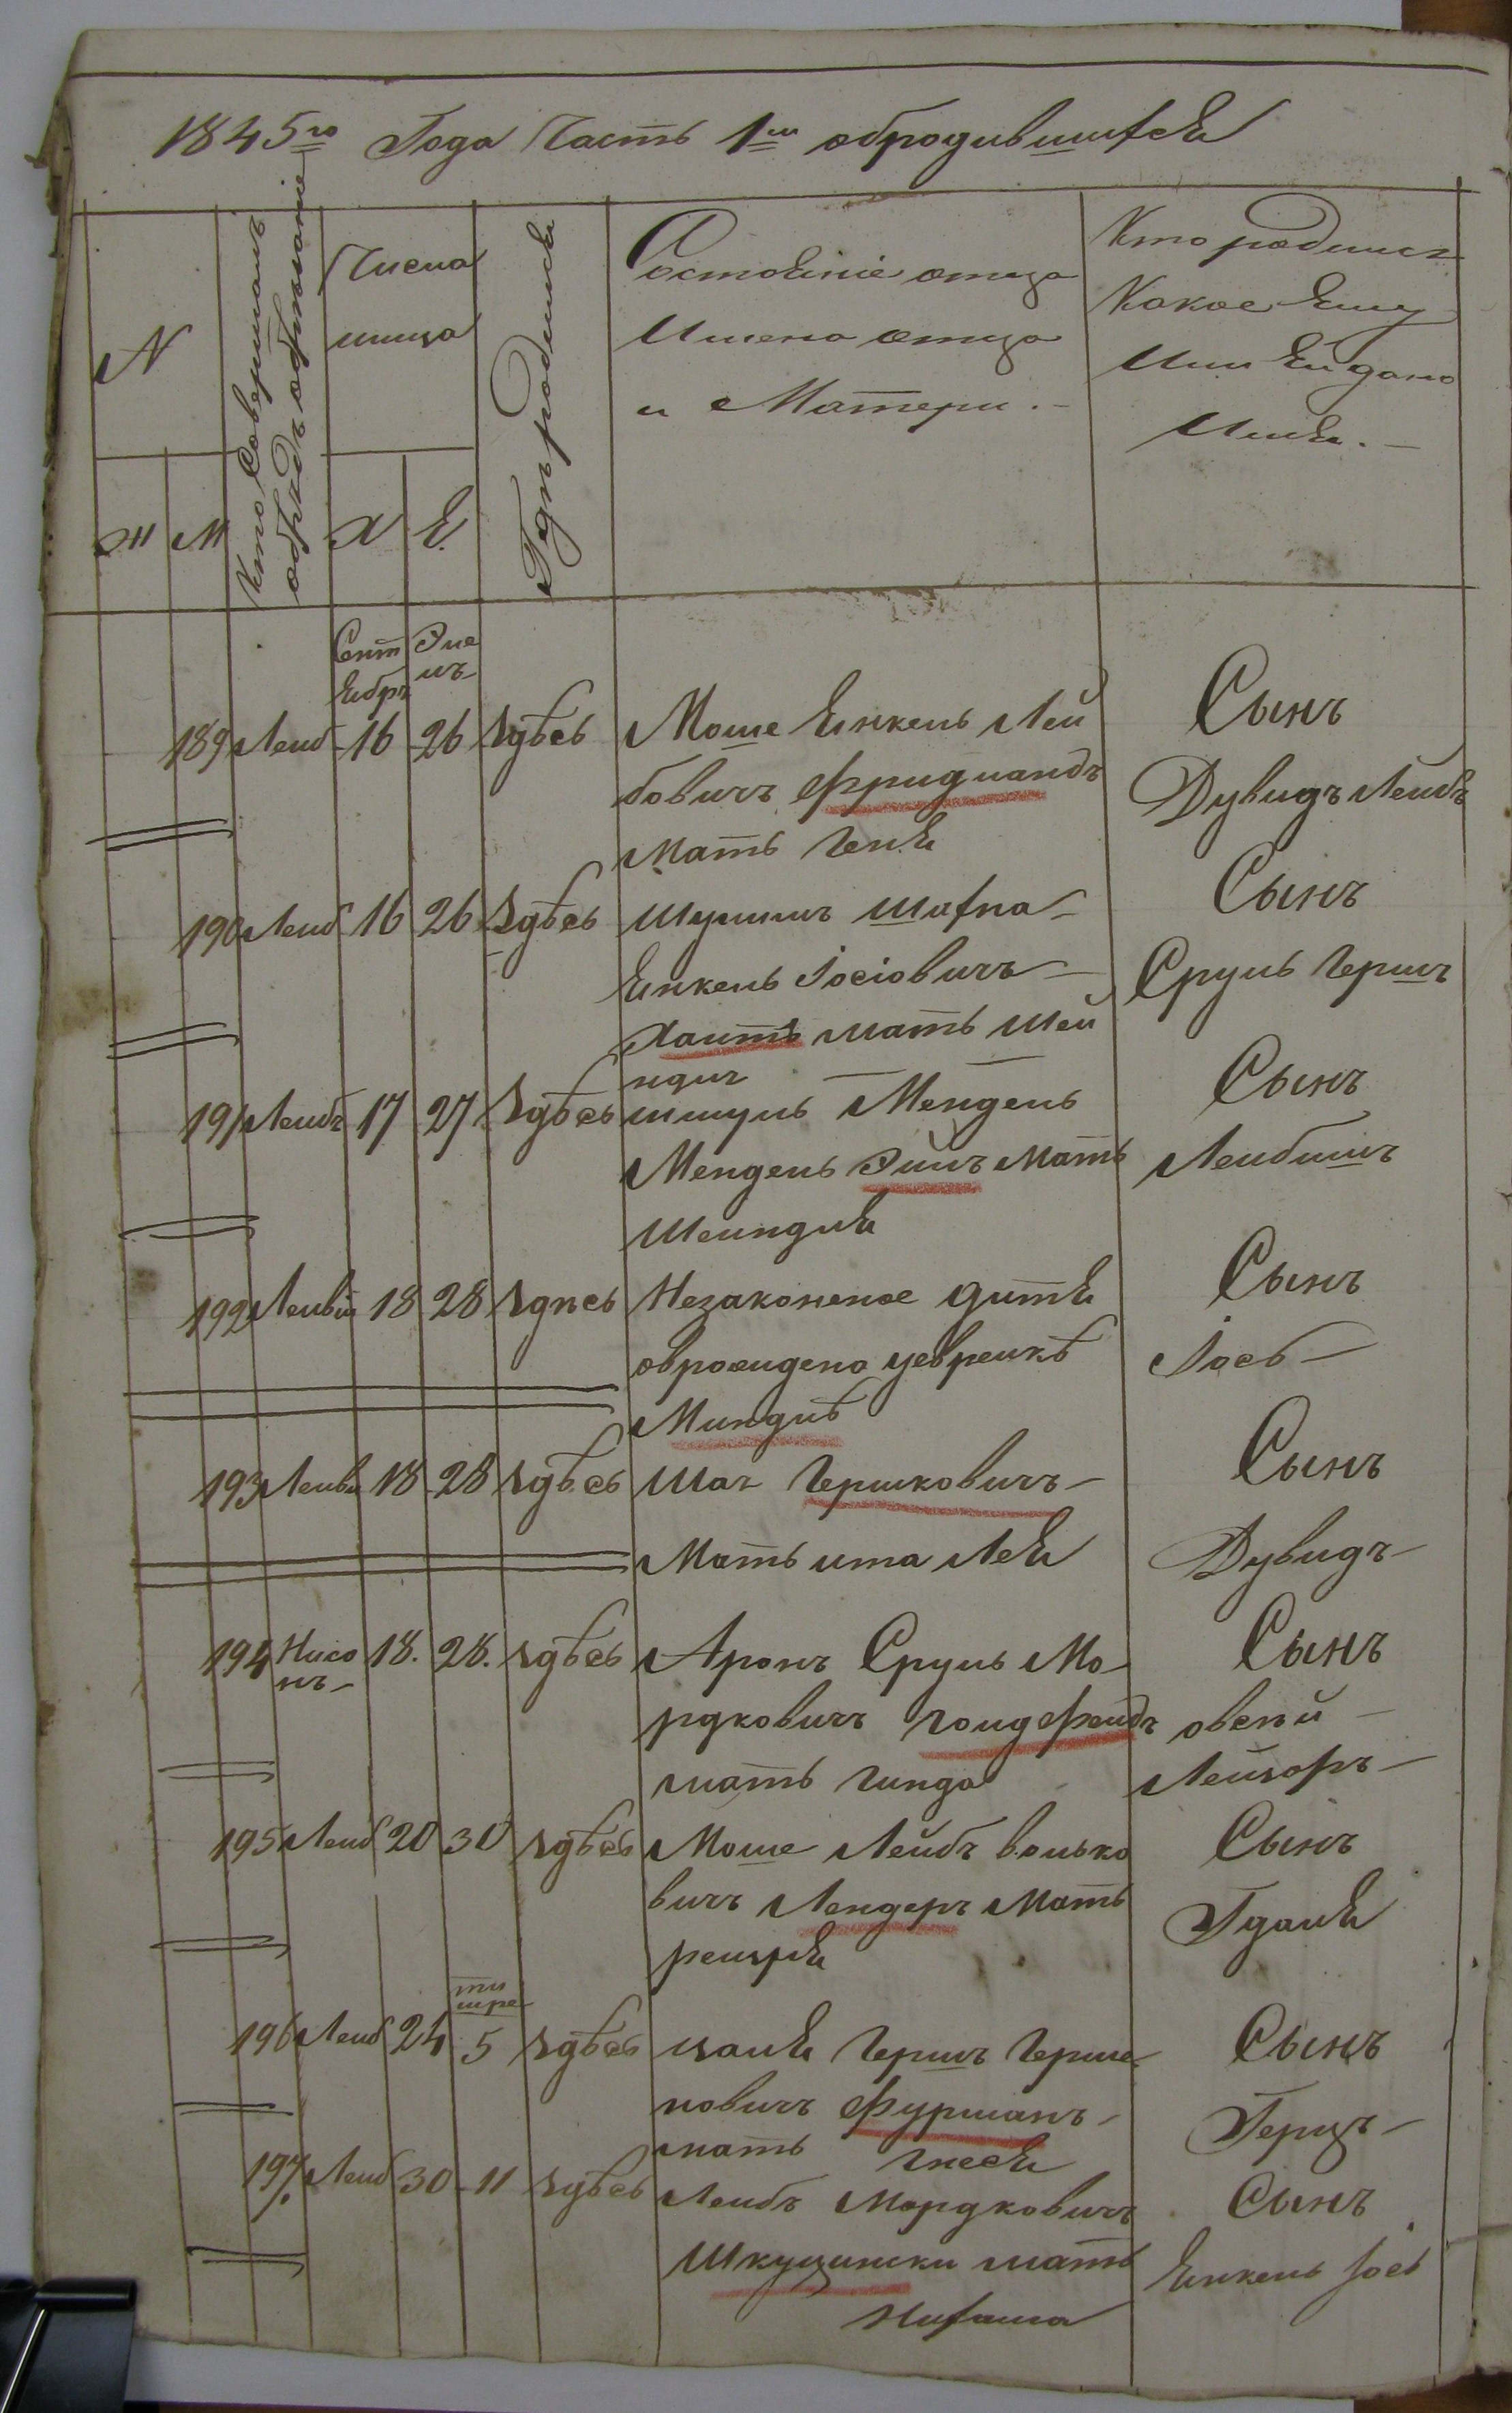 1845го Года Часть 1ая обродившихся
N
Кто Совершалъ
обрядъ обрѣзанія
Числа
мица
Гдѣ родился
Состояніе отца
Имена отца
и Матери. -
Кто родился
Какое Ему
Или Ей дано
Имя. -
Ж М Х Е.
Сент
ябрь
Эле
лъ
189 Лейб 16 26 здѣсь Моше Янкель Лей
бовичъ Фридландъ
мать Геня
Сынъ
Дувидъ Лейбъ
190 Лейб 16 26 здѣсь Шулимъ Шахна
Янкель Іосіовичъ
Хаитъ мать Шей
ндля
Сынъ
Сруль Гершъ
191 Лейбъ 17 27 здѣсь шмуль Мендель
Мендель Эйлъ мать
Шейндля
Сынъ
Лейбишъ
192 18 28 здпсь Незаконное дитя
оврождено уеврейкѣ
Миндлѣ
Сынъ
Іось
193 18 28 здѣсь Гершковичъ
Мать ита Лея
Сынъ
Дувидъ
194 Нисо
нъ 18. 28. здѣсь Аронъ Сруль Мо
рдковичъ голдфельдъ
мать Гинда
Сынъ
овсѣй
Лейзоръ
195 Лейб 20 30 здѣсь Моше Лейбъ волько
вичъ Лендеръ Мать
рейзля
Сынъ
Гдаля
ти
шре
196 Лейб 24 5 здѣсь цаля Гершъ Герше
новичъ Фурманъ
мать гнеся
Сынъ
Герцъ
197. Лейб 30 11 здѣсь Лейбъ Мордковичъ
мать
Нихама
Сынъ
Янкель Іось